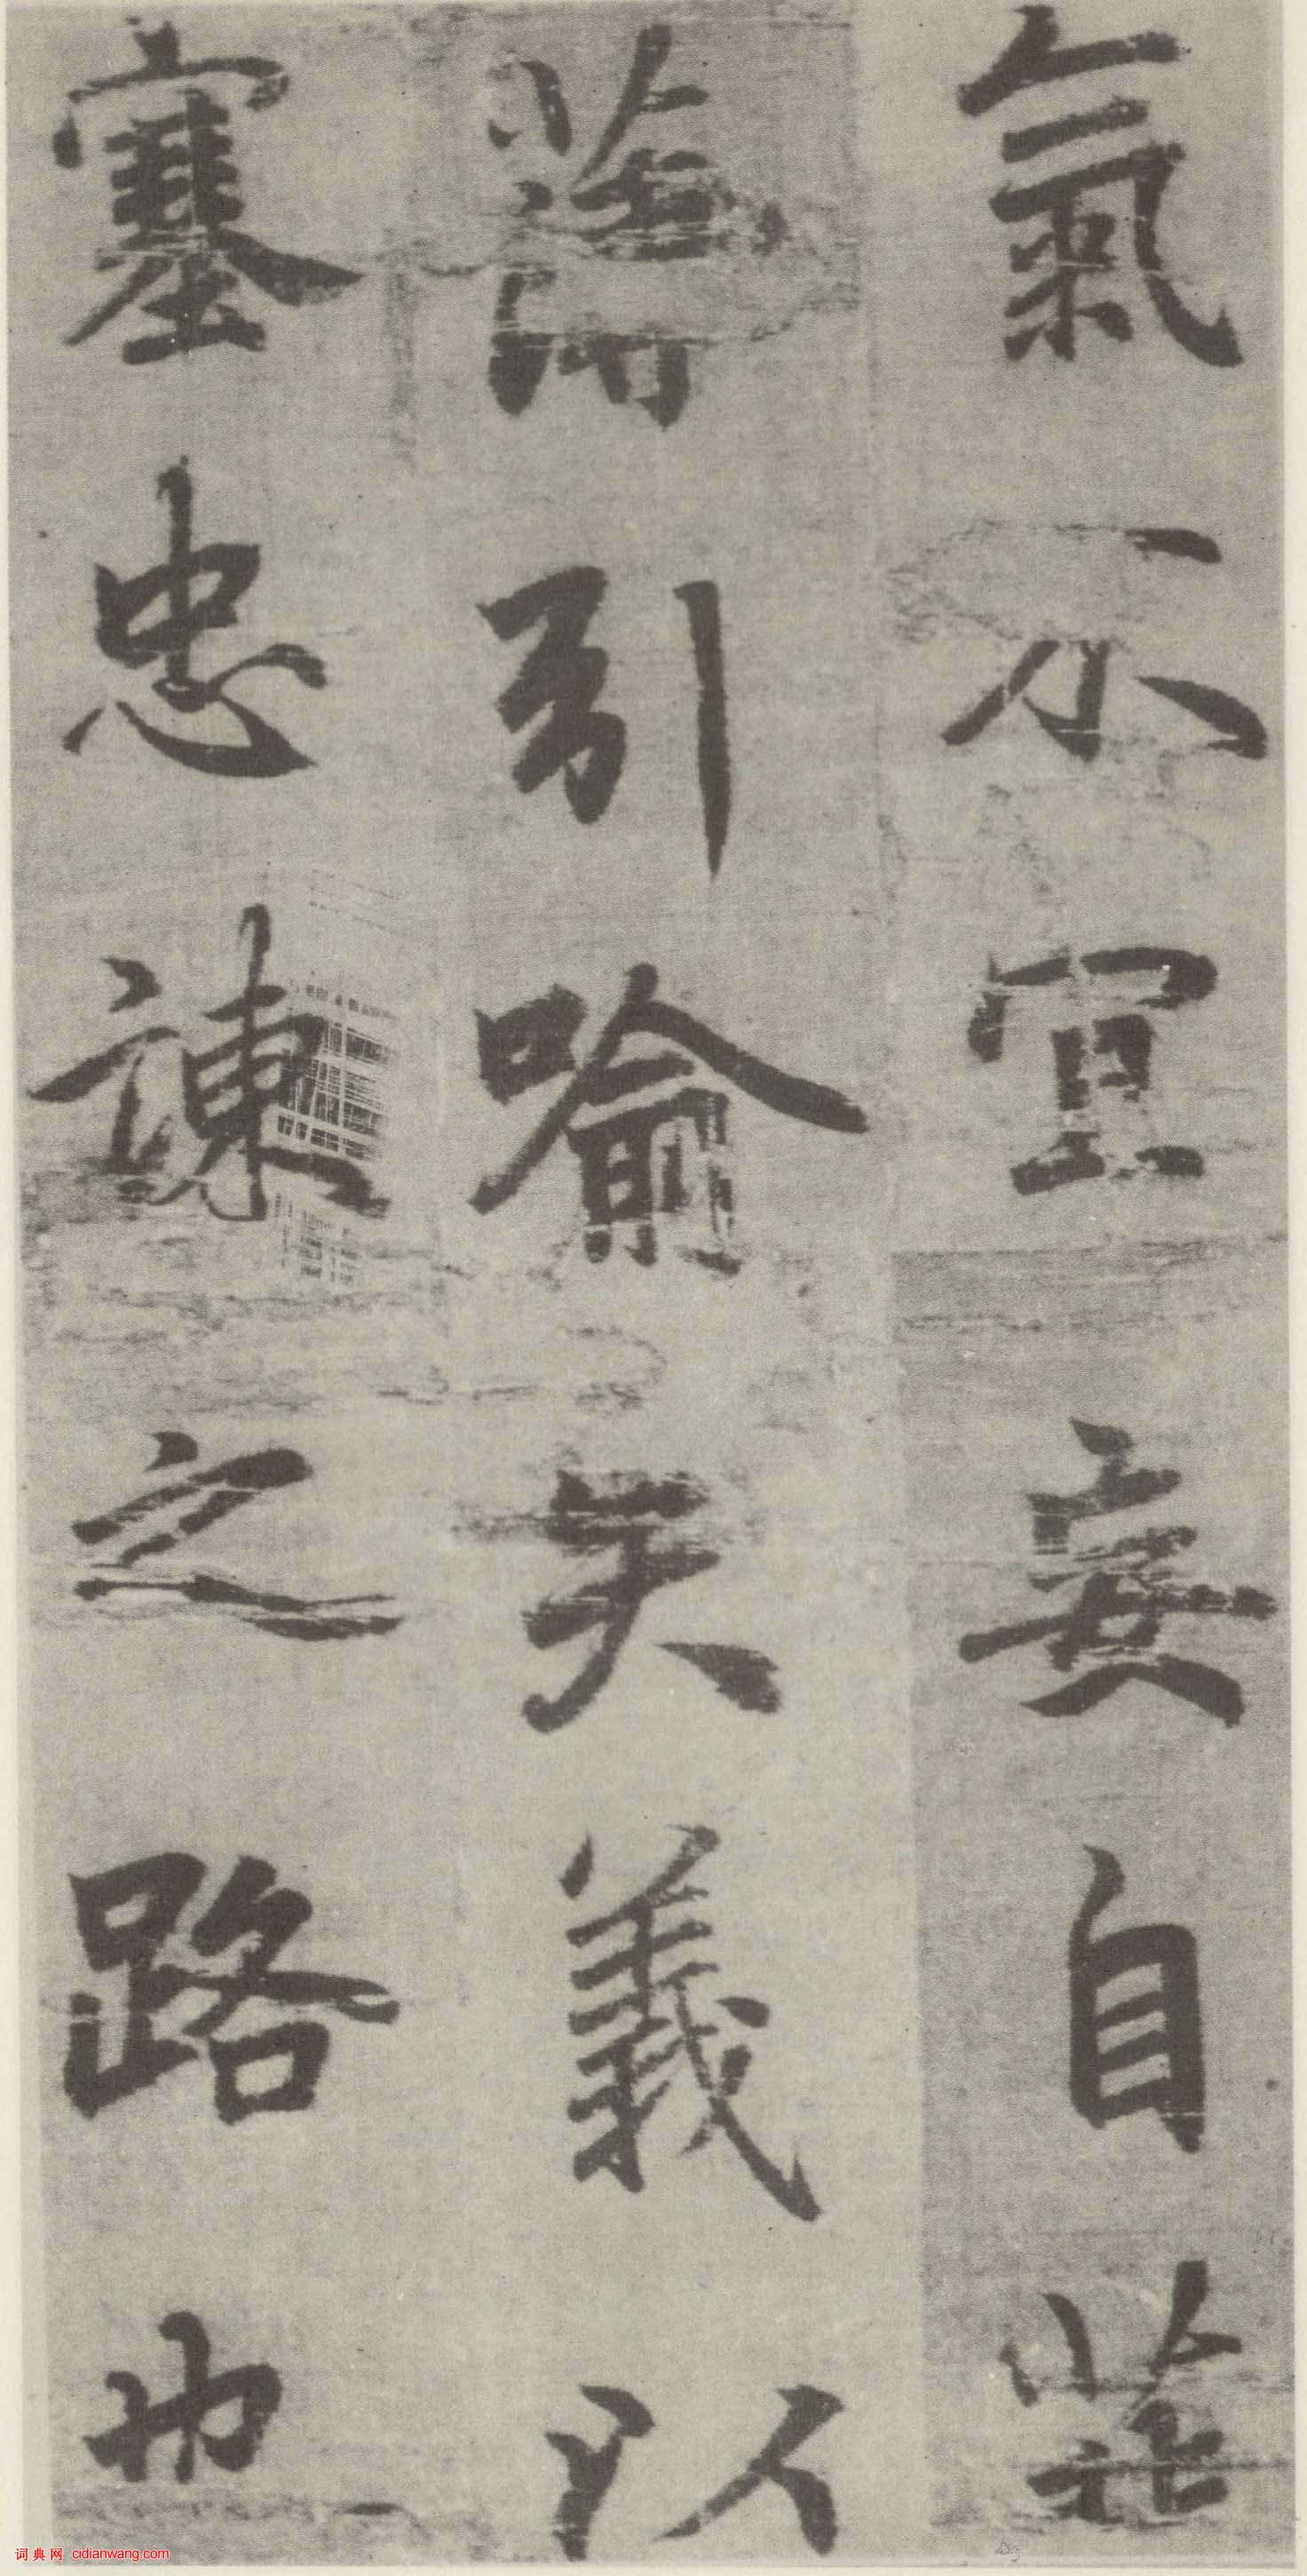 氣不宜妄自菲
薄引喻失義以
塞忠諫之路也
词典网 cidianwang.com